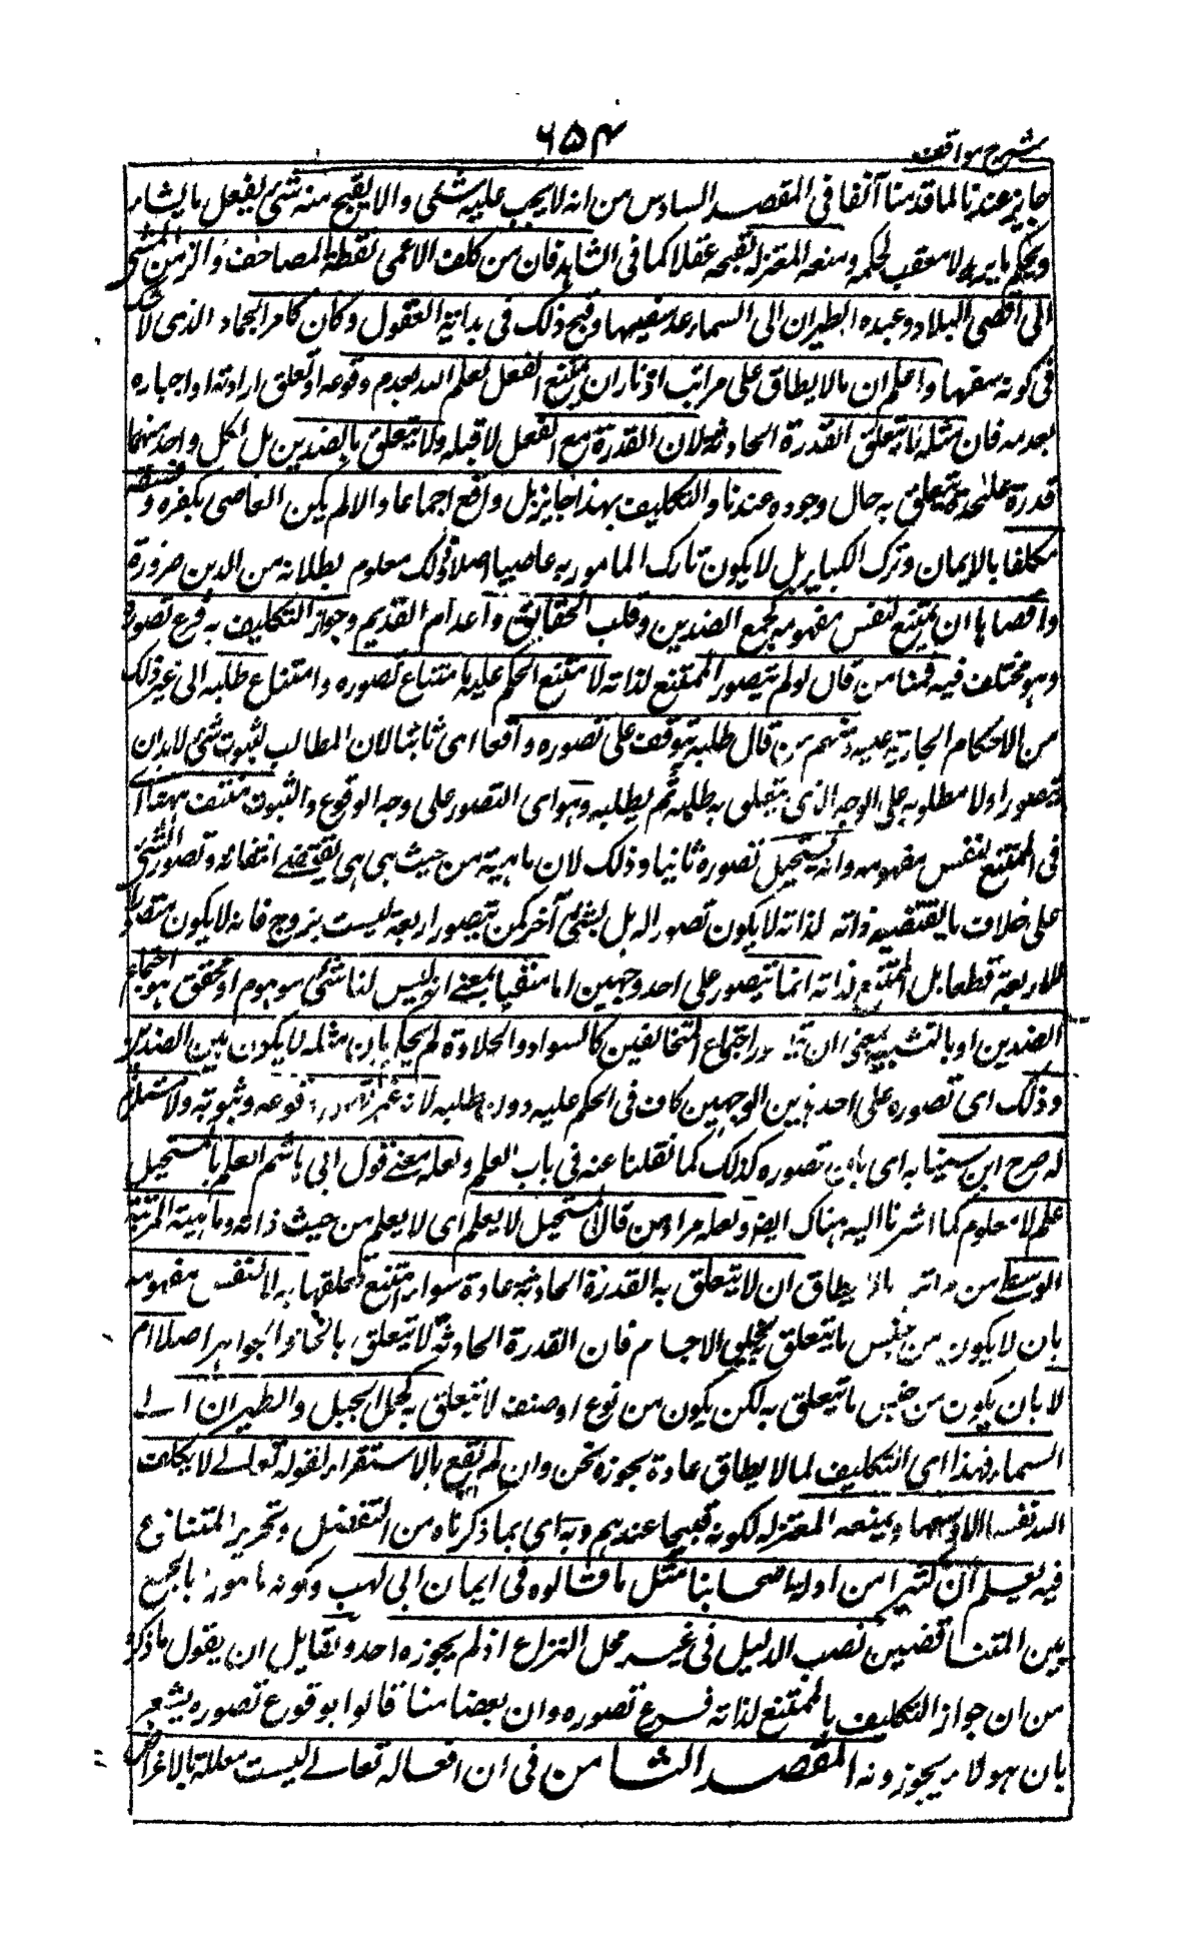 شرح مواقف
۶۵۴
جايز عندنا لما قدمنا آنفا فى المقصد السادس من انه لا يجب عليه شئى ولا يقبح منه شئ يفعل ما يشاء
ويحكم ما يريد لا معقب لحكمه ومنعه المعتزلة لقبحه عقلا كما فى الشاهد فان من كلف الاعمى نقطة المصاحف والزمن المشى
الى اقصى البلاد وعبده الطيران الى السماء عد سفيها وقبح ذلك فى بداية العقول وكان كامر الجماد الذى لا شك
فى كونه سفها واعلم ان ما لا يطاق على مراتب ادناها ان يمتنع الفعل لعلم الله بعدم وقوعه او تعلق ارادته او اخباره
بعدمه فان مثله لا يتعلق القدرة الحادثة لان القدرة مع الفعل لا قبله ولا يتعلق بالضدين بل لكل واحد منهما
قدرة عليحدة يتعلق به حال وجوده عندنا والتكليف بهذا جايز بل واقع اجماعا والا لم يكن العاصى بكفره وفسقه
مكلفا بالايمان وترك الكباير بل لا يكون تارك المامور به عاصيا اصلا وذلك معلوم بطلانه من الدين ضرورة
واقصاها ان يمتنع لنفس مفهومه كجمع الضدين وقلب الحقائق واعدام القديم وجواز التكليف به فرع تصوره
وهو مختلف فيه فمنا من قال لو لم يتصور الممتنع لذاته لا متنع الحكم عليه بامتناع تصوره وامتناع طلبه الى غير ذلك
من الاحكام الجارية عليه ومنهم من قال طلبه يتوقف على تصوره واقعا اى ثابتا لان الطالب لثبوت شئ لا بد ان
يتصور اولا مطلوبه على الوجه الذى يتعلق به طلبه ثم يطلبه وهو اى التصور على وجه الوقوع والثبوت منتف ههنا اى
فى الممتنع لنفس مفهومه وانه يستحيل تصوره ثانيا وذلك لان ماهيته من حيث هى هى يقتضى انتفائه وتصور الشئ
على خلاف ما يقتضيه ذاته لذاته لا يكون تصورا له بل لشئ آخر كمن يتصور اربعة ليست بزوج فانه لا يكون متصورا
للاربعة قطعا بل الممتنع لذاته انما يتصور على احد وجهين اما منفيا بمعنى انه ليس لنا شئ موهوم او محقق هو اجتماع
الضدين او بالتشبيه بمعنى ان اجتماع المتخالفين كالسواد والحلاوة ثم يحكم بان مثله لا يكون بين الضدين
وذلك اى تصوره على احد هذين الوجهين كاف فى الحكم عليه دون طلبه لانه غير وقوعه وثبوته ولا مستلزم
له صرح ابن سينا به اى بان تصوره كذلك كما نقلنا عنه فى باب العلم ولعله معنى قول ابى هاشم العلم بالمستحيل
علم لا معلوم كما اشرنا اليه هناك ايضا ولعله مراد من قال المستحيل لا يعلم اى لا يعلم من حيث ذاته وماهيته المرتبة
الوسطى من مراتب ما لا يطاق ان لا يتعلق به القدرة الحادثة عادة سواء امتنع تعلقها به لا لنفس مفهومه
بان لا يكون من جنس ما يتعلق به كخلق الاجسام فان القدرة الحادثة لا يتعلق بايجاد الجواهر اصلا ام
لا بان يكون من جنس ما يتعلق به لكن يكون من نوع او صنف لا يتعلق به كحمل الجبل والطيران الے
السماء فهذا اى التكليف لما لا يطاق عادة يجوزه نحن وان لم يقع بالاستقراء لقوله تعالے لا يكلف
الله نفسا الا وسعها ويمنعه المعتزلة لكونه قبيحا عندهم وبه اى بما ذكرناه من التفصيل وتحرير المتنازع
فيه يعلم ان كثيرا من ادلة اصحابنا مثل ما قالوه فى ايمان ابى لهب وكونه مامورا بالجمع
بين المتناقضين نصب الدليل فى غير محل النزاع اذ لم يجوزه احد ولقايل ان يقول ما ذكره
من ان جواز التكليف بالممتنع لذاته فرع تصوره وان بعضا منا قالوا بوقوع تصوره يشعر
بان هولاء يجوزونه المقصد الثامن فى ان افعاله تعالے ليست معللة بالاغراض